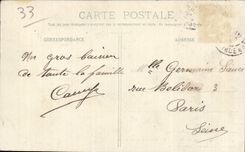 33
CARTE POSTALE
CORRESPONDANCE
ADRESSE
Un gros baiser
de toute la famille
Mlle Germaine
rue Bolidor 3
Paris
Seine